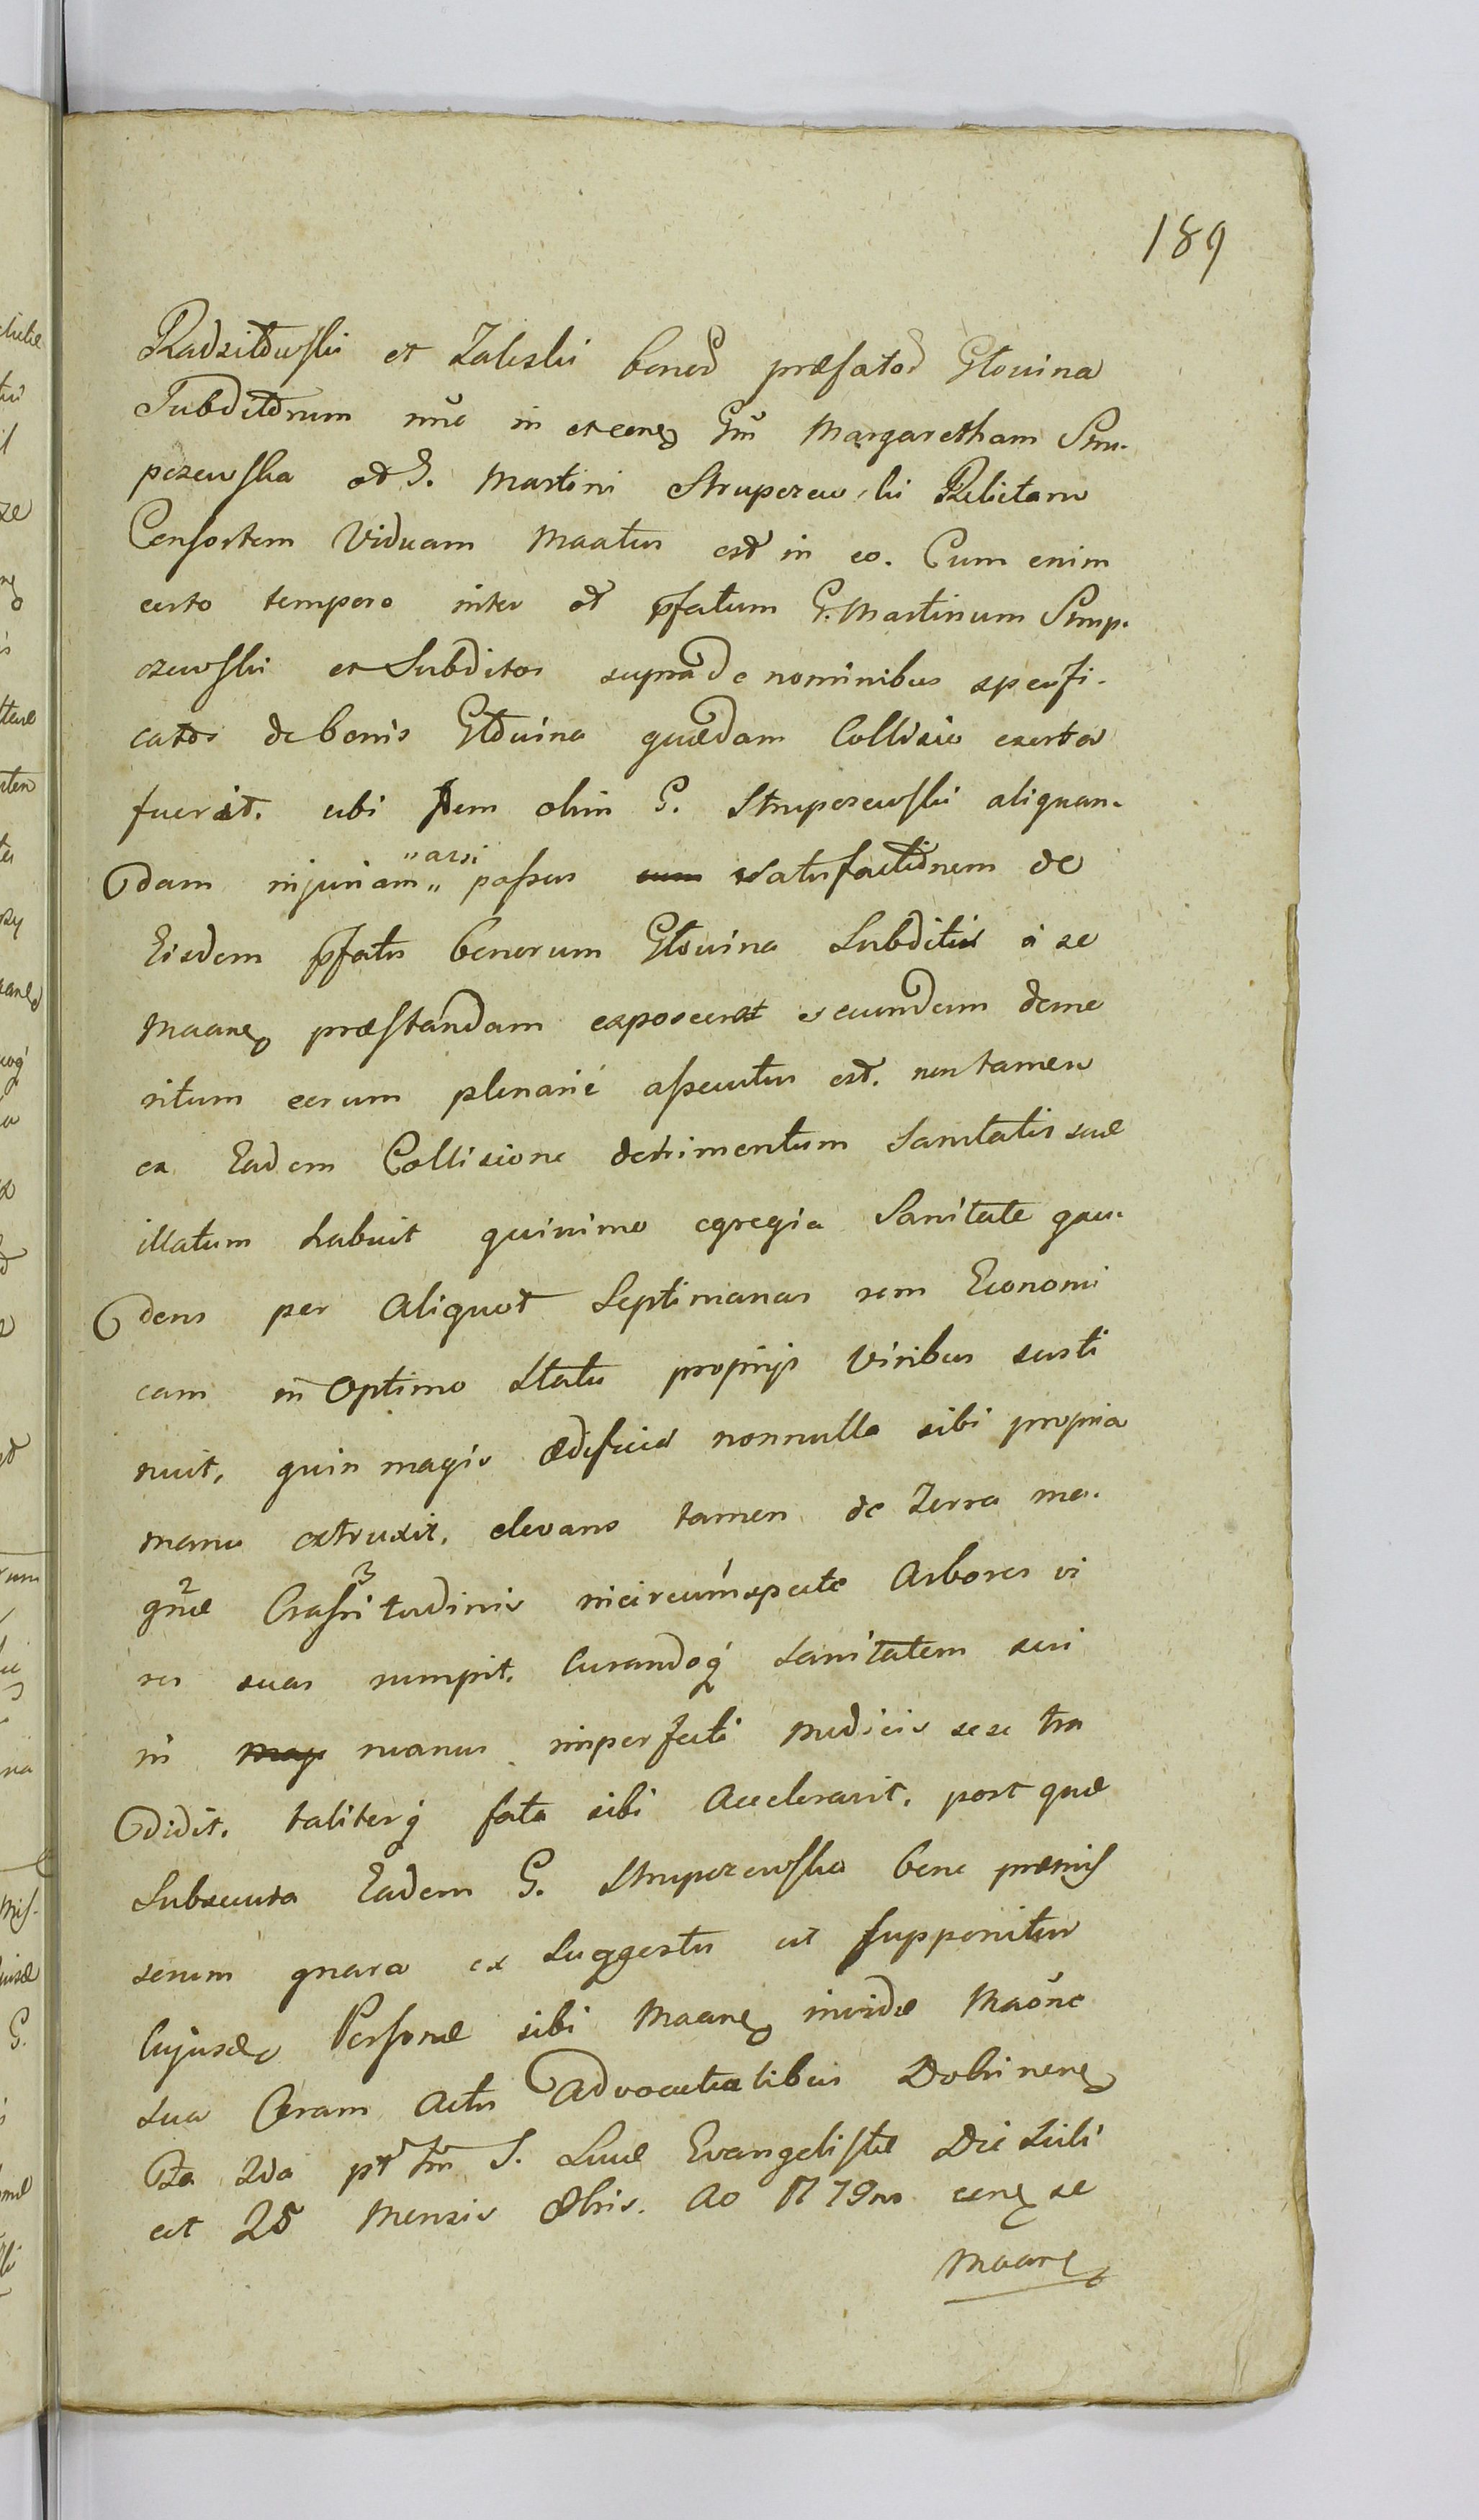 189
Radziłłowski et Zaleski bonor præfator Głovina
Subditorum nunc in et cone Gm Margaretham Stru-
pczewska olim G. Martini Strupczewski Relictam
Consortem Viduam Maatus est in eo. Cum enim
certo tempore inter olim pfatum G. Martinum Strup-
czewski et Subditos supra de nominibus specifi-
catos de bonis Głovina quædam Collisio exorta
fuerit, ubi idem olim G. Strupczewski aliquan-
dam injuriam „arsi„ passus satisfactionem de
Eisdem pfatis bonorum Głovina Subditis a se
Maane præstandam exposcerat secundum deme
ritum eorum plenarié assecutus est. non tamen
ex Eadem Collisione detrimentum Sanitatis suæ
illatum habuit quinimo egregia Sanitate gau-
dens per Aliquot Septimanas rem Economi
cam in Optimo Statu proprijs Viribus susti
nuit, quin magis ædificia nonnulla sibi propria
manu extruxit, elevans tamen de Terra ma-
gnæ Crassitudinis incircumspecte Arbores vi
res suas rumpit. Curandoq sanitatem sui
in manus imperfecti Medicis sese tra
didit, taliterq fata sibi Accelerarit, post quæ
Subsecuta Eadem G. Strupczewska bene præmis
sorum gnara ex Suggestu ut supponitur
Cujusd Personæ sibi Maane invidæ Maone
sua Coram Actis Advocatialibus Dobrinen
Fia 2da pt fm S. Lucæ Evangelistæ Die scili
cet 25 Mensis 8bris. Ao 1779no cone se
Maane